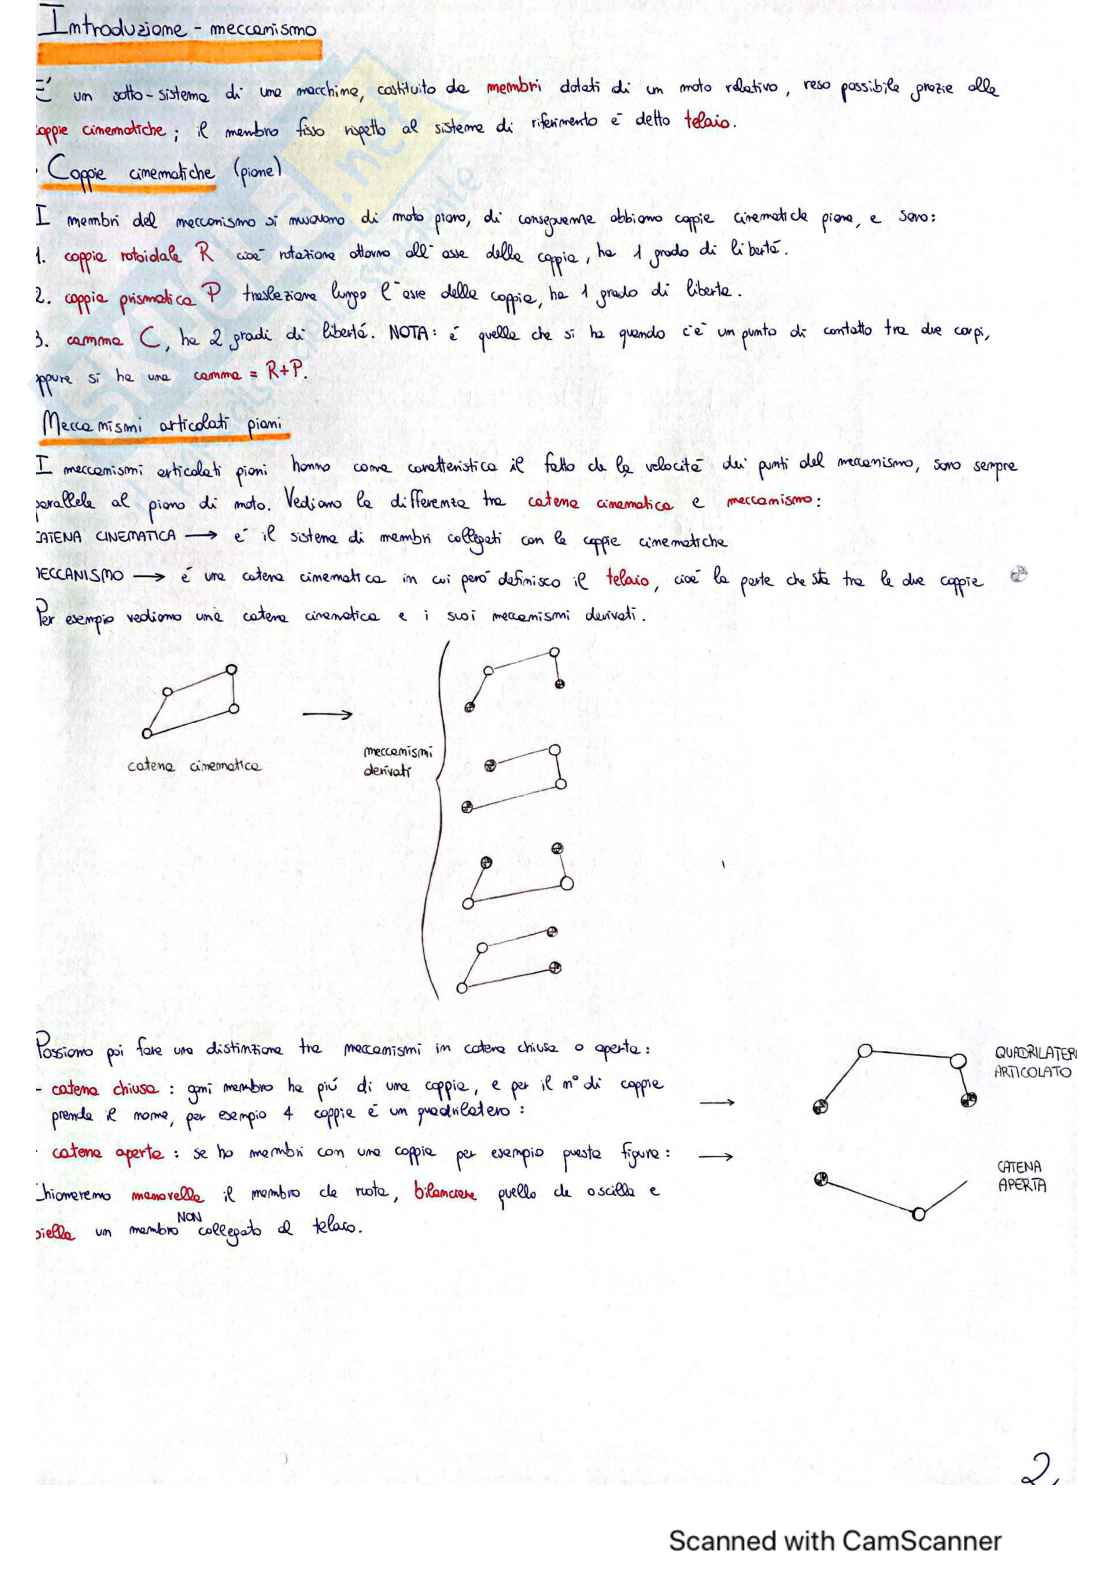 Introduzione - meccanismo
E' un sotto-sistema di una macchina, costituito da membri dotati di un moto relativo, reso possibile grazie alle
oppie cinematiche; il membro fisso rispetto al sistema di riferimento è detto telaio.
Coppie cinematiche (piane)
I membri del meccanismo si muovono di moto piano, di conseguenza abbiamo coppie cinematiche piane, e sono:
1. coppia rotoidale R cioè rotazione attorno all'asse della coppia, ha 1 grado di libertà.
2. coppia prismatica P traslazione lungo l'asse della coppia, ha 1 grado di libertà.
3. camma C, ha 2 gradi di libertà. NOTA: è quella che si ha quando c'è un punto di contatto tra due corpi,
oppure si ha una camma = R+P.
Meccanismi articolati piani
I meccanismi articolati piani hanno come caratteristica il fatto che le velocità dei punti del meccanismo, sono sempre
parallele al piano di moto. Vediamo la differenza tra catena cinematica e meccanismo:
CATENA CINEMATICA → è il sistema di membri collegati con le coppie cinematiche
MECCANISMO → è una catena cinematica in cui però definisco il telaio, cioè la parte che sta tra le due coppie
Per esempio vediamo una catena cinematica e i suoi meccanismi derivati.
catena cinematica
→
meccanismi
derivati
Possiamo poi fare una distinzione tra meccanismi in catena chiusa o aperta:
- catena chiusa : ogni membro ha più di una coppia, e per il n° di coppie
prende il nome, per esempio 4 coppie è un quadrilatero :
→
QUADRILATER
ARTICOLATO
· catena aperta : se ho membri con una coppia per esempio questa figura :
→
CATENA
APERTA
Chiameremo manovella il membro che ruota, bilanciere quello che oscilla e
biella un membro NON collegato al telaio.
2.
Scanned with CamScanner